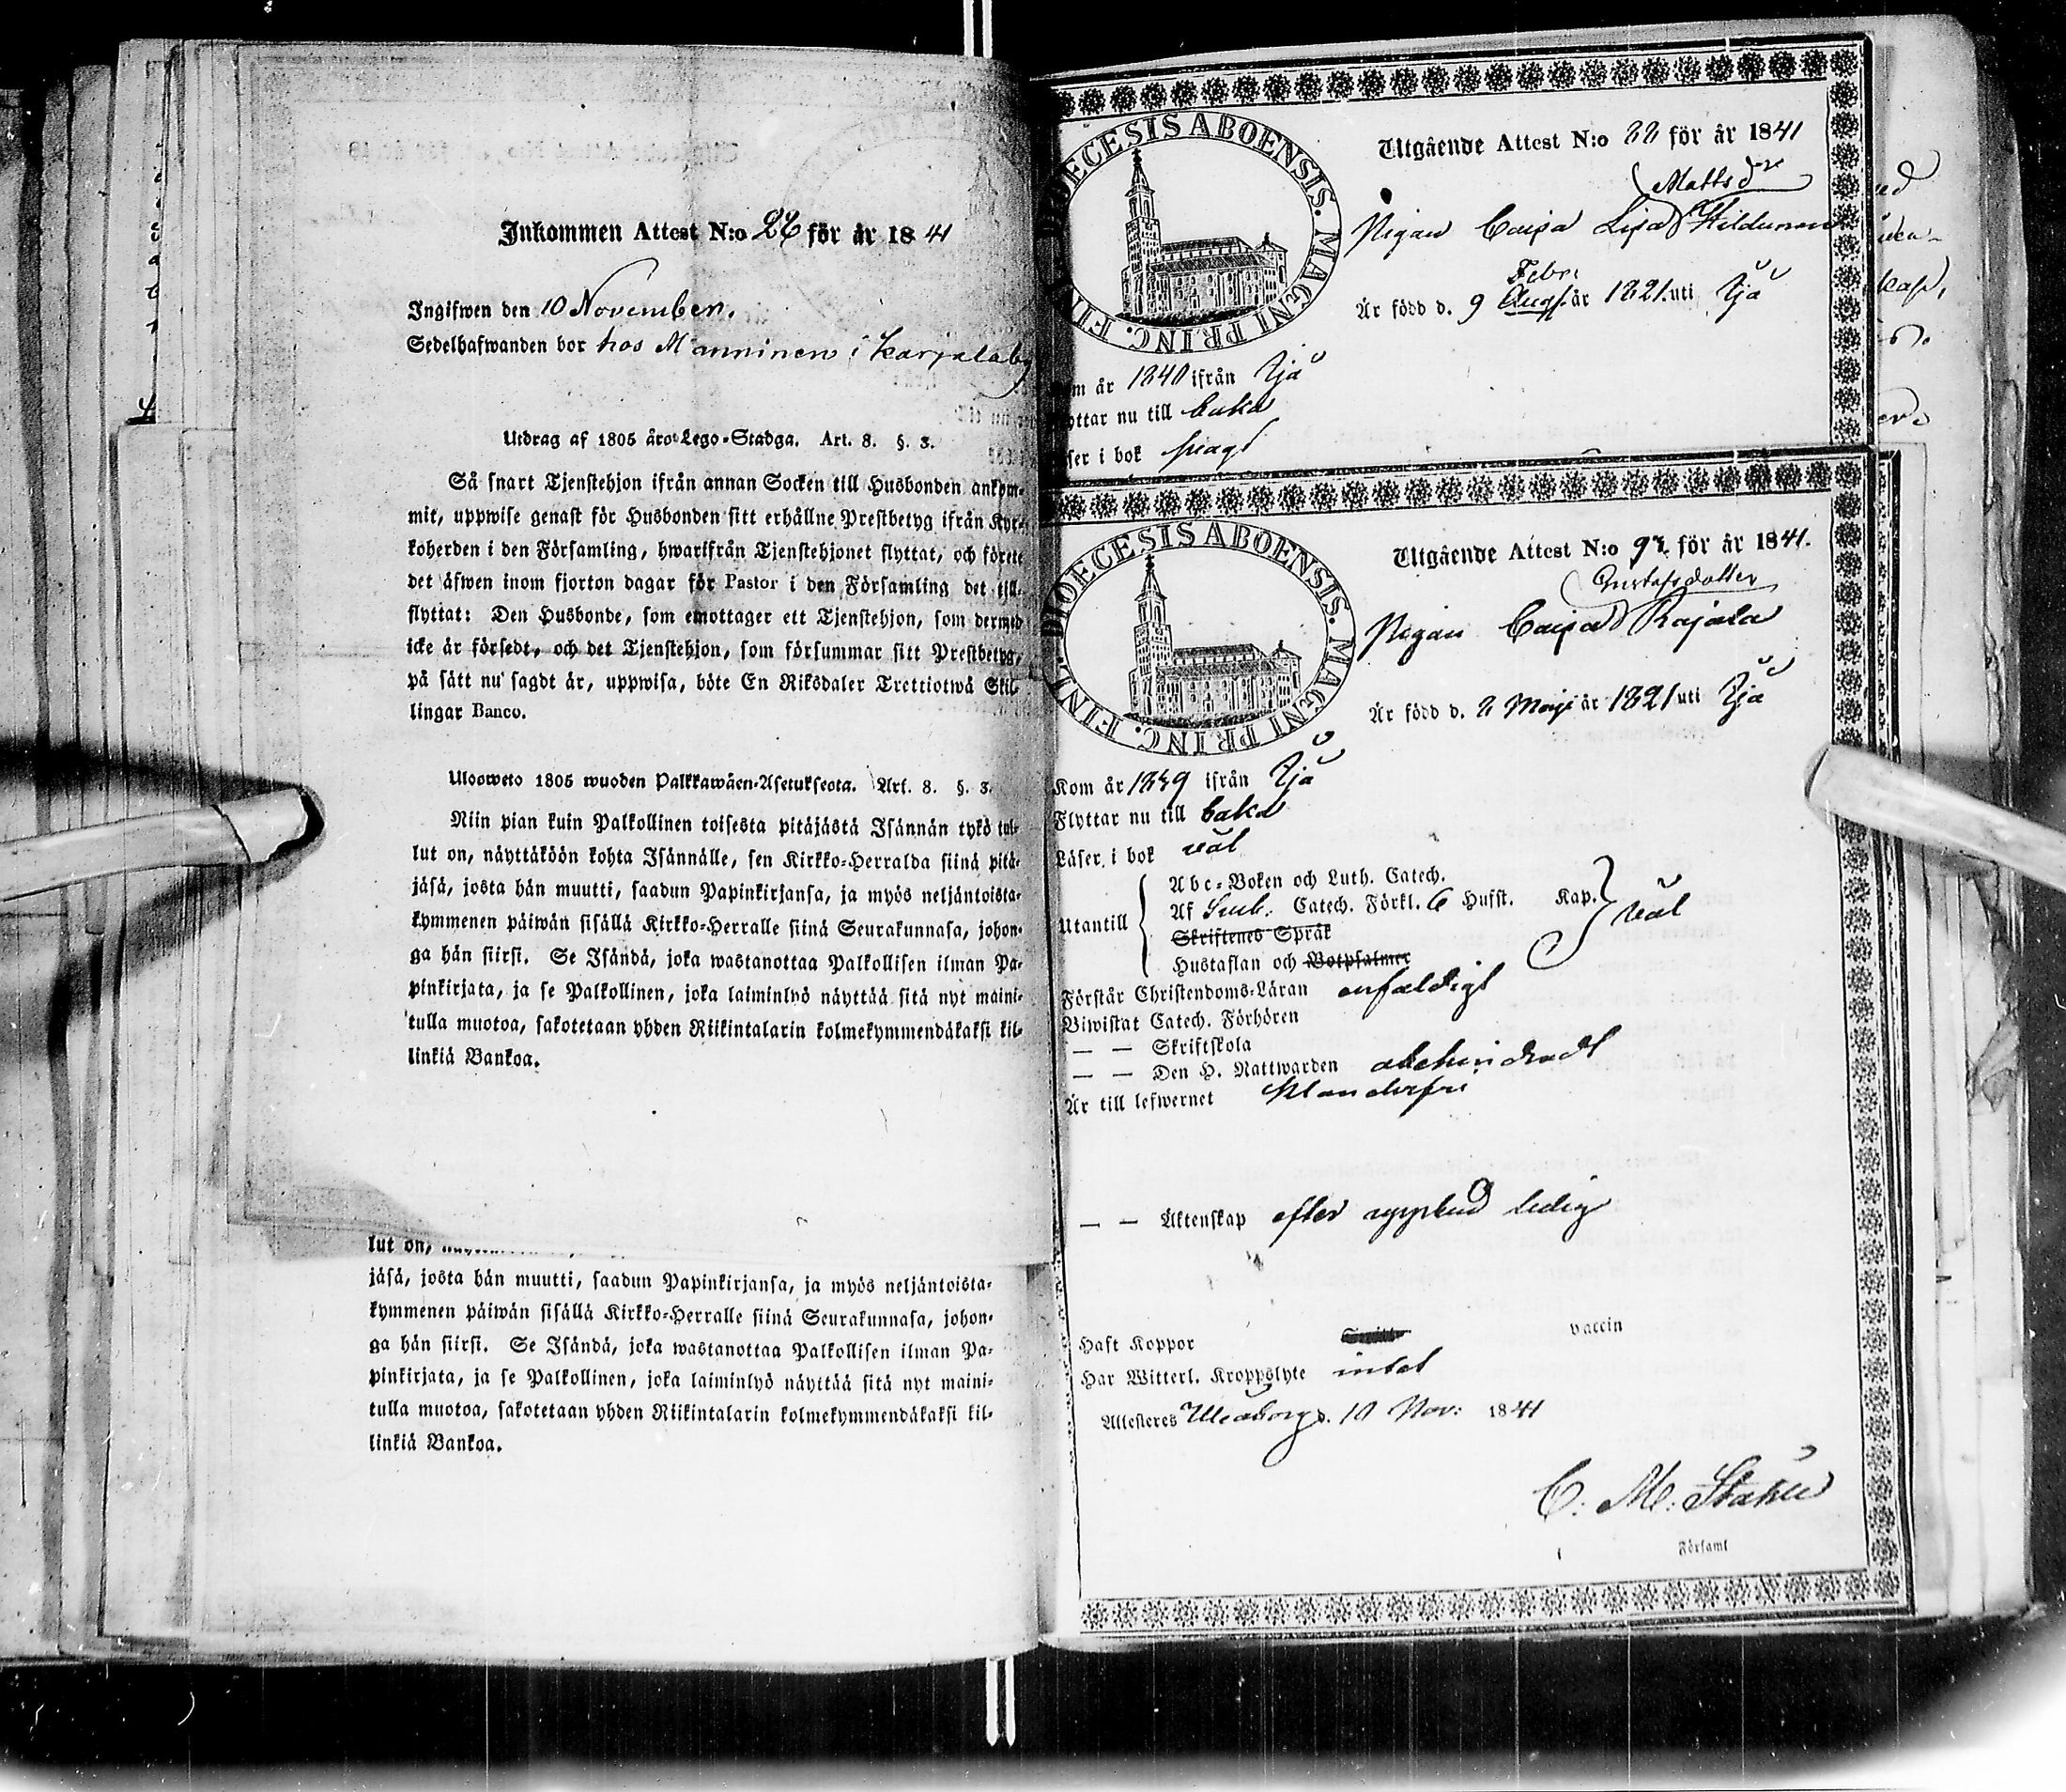 Inkommen Attest N:o 22 för år 1841
Ingifwen den 10 November.
Sedelhafwanden bor hos Manninen i Karjala by
Utdrag af 1805 års Lego-Stadga. Art. 8. §. 3.
Så snart Tjenstehjon ifrån annan Socken till Husbonden ankom-
mit, uppwise genast för Husbonden sitt erhållne Prestbetyg ifrån Kyr-
koherden i den Församling, hwarifrån Tjenstehjonet flyttat, och förete
det äfwen inom fjorton dagar för Pastor i den Församling det till-
flyttat: Den Husbonde, som emottager ett Tjenstehjon, som dermed
icke är försedt, och det Tjenstehjon, som försummar sitt Prestbetyg,
på sätt nu sagdt är, uppwisa, böte En Riksdaler Trettiotwå Skil-
lingar Banco.
Ulosweto 1805 wuoden Palkkawäen-Asetuksesta. Art. 8. §. 3.
Niin pian kuin Palkollinen toisesta pitäjästä Isännän tykö tul-
lut on, näyttäköön kohta Isännälle, sen Kirkko-Herralda siinä pitä-
jäsä, josta hän muutti, saadun Papinkirjansa, ja myös neljäntoista-
kymmenen päiwän sisällä Kirkko-Herralle siinä Seurakunnasa, johon-
ga hän siirsi. Se Isändä, joka wastanottaa Palkollisen ilman Pa-
pinkirjata, ja se Palkollinen, joka laiminlyö näyttää sitä nyt maini-
tulla muotoa, sakotetaan yhden Riikintalarin kolmekymmendäkaksi kil-
linkiä Bankoa.
lut on,
jäsä, josta hän muutti, saadun Papinkirjansa, ja myös neljäntoista-
kymmenen päiwän sisällä Kirkko-Herralle siinä Seurakunnasa, johon-
ga hän siirsi. Se Isändä, joka wastanottaa Palkollisen ilman Pa-
pinkirjata, ja se Palkollinen, joka laiminlyö näyttää sitä nyt maini-
tulla muotoa, sakotetaan yhden Riikintalarin kolmekymmendäkaksi kil-
linkiä Bankoa.
DIOECESIS ABOENSIS. MAGNI PRINC. FINL.
Utgående Attest N:o 22 för år 1841
Mattsdr
Pigan Caisa Lisa
Är född d. 9 Febr. Aug. år 1821. uti Ijå
Kom år 1840 ifrån Ijå
Flyttar nu till baka
Läser i bok swagt
DIOECESIS ABOENSIS. MAGNI PRINC. FINL.
Utgående Attest N:o för år 1841.
Gustafsdotter
Pigan Caisa Rajala
Är född d. 2 Maji år 1821 uti Ijå
Kom år 1839 ifrån Ijå
Flyttar nu till baka
Läser i bok väl
Utantill
Abc-Boken och Luth. Catech.
Af Catech. Förkl. 6 Hufst. Kap. väl
Skriftenes Språk
Hustaflan och Botpsalmer
Förstår Christendoms-Läran enfaldigt
Biwistat Catech. Förhören
— — Skriftskola
— — Den H. Nattwarden obehindradt
Är till lefwernet klanderfri
— — Äktenskap efter uppbud ledig
Haft Koppor vaccin
Har Witterl. Kroppslyte intet
Attesteres Uleåborg d. 10 Nov: 1841
C. M. Ståhle
Församl